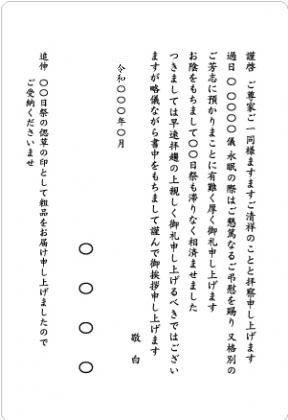 謹啓 ご尊家ご一同様ますますご清祥のことと拝察申し上げます
過日 〇〇〇〇〇儀 永眠の際はご懇篤なるご弔慰を賜り 又格別の
ご芳志に預かりまことに有難く厚く御礼申し上げます
お陰をもちまして〇〇日祭も滞りなく相済ませました
つきましては早速拝趨の上親しく御礼申し上げるべきではござい
ますが略儀ながら書中をもちまして謹んで御挨拶申し上げます
敬白
令和〇〇〇年〇月
〇〇〇〇
追伸 〇〇日祭の偲草の印として粗品をお届け申し上げましたので
ご受納くださいませ